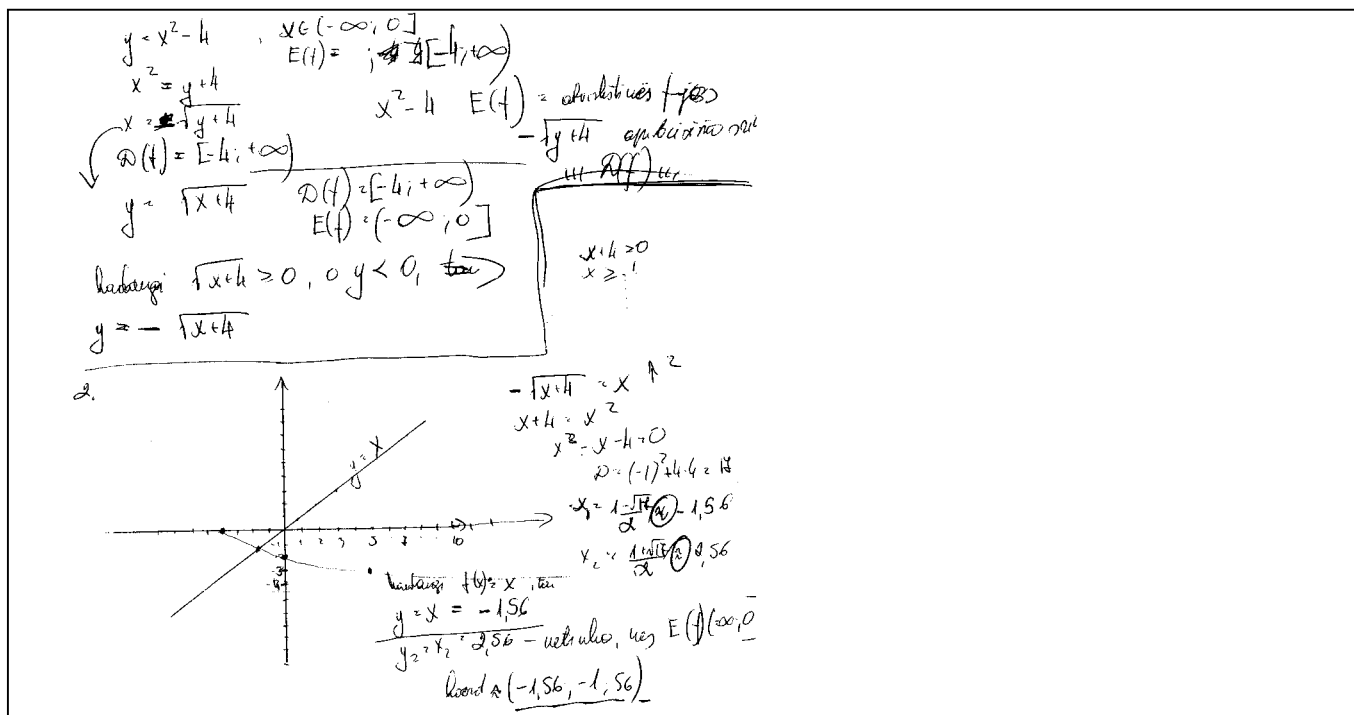 y = x² - 4 , x ∈ (-∞; 0]
E(f) = [-4; +∞)
x² = y+4
x = -√y+4
D(f) = [-4; +∞)
x² - 4 E(f) = atvirkštinės f-jos
-√y+4 apibrėžimo
D(f)
y = √x+4 D(f) = [-4; +∞)
E(f) = (-∞; 0]
kadangi √x+4 ≥ 0, o y < 0,
y = - √x+4
x+4 >0
x ≥
2.
y = x
-1 1 2 3 5 7 10
-3
-4
-√x+4 = x ↑ 2
x+4 = x²
x² - x - 4 = 0
D = (-1)² + 4·4 = 17
x₁ = 1-√17/2 ≈ -1,56
x₂ = 1+√17/2 ≈ 2,56
kadangi f(x) = x , tai
y = x = -1,56
y₂ = x₂ = 2,56 - netinka, nes E(f) (-∞; 0
koord ≈ (-1,56, -1,56)